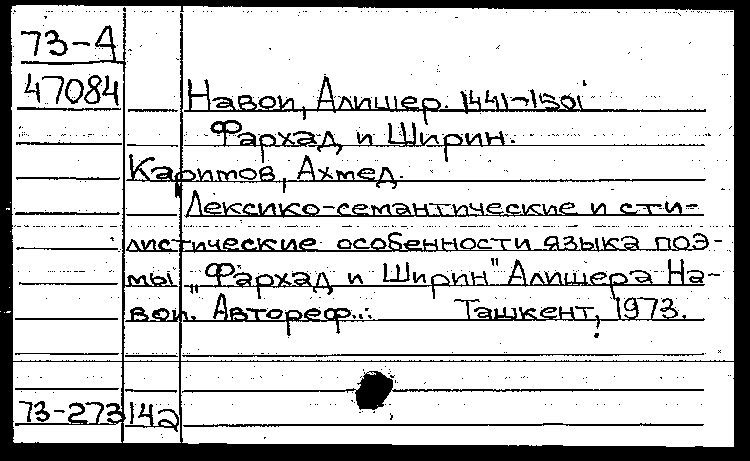 73-А
47084
Навои, Алишер. 1441-1501
Фархад и Ширин.
Каримов, Ахмед.
Лексико-семантические и сти-
листические особенности языка поэ-
мы „Фархад и Ширин" Алишера На-
вои. Автореф..: Ташкент, 1973.
73-273 142